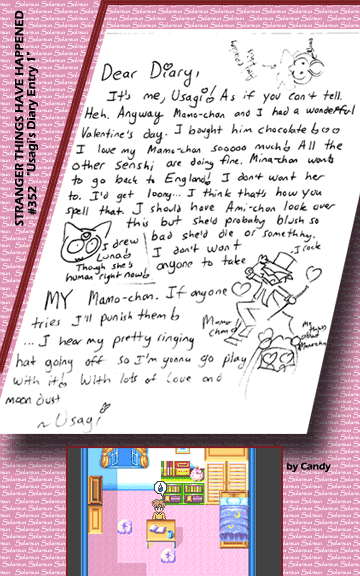 STRANGER THINGS HAVE HAPPENED
#352 "Usagi's Diary Entry 1"
Dear Diary,
It's me, Usagi! As if you can't tell.
Heh. Anyway Mamo-chan and I had a wonderful
Valentine's day. I bought him chocolate!ooo
I love my Mamo-chan sooooo much! All the
other Senshi are doing fine. Mina-chan wants
to go back to England! I don't want her
to. I'd get loony... I think that's how you
spell that. I should have Ami-chan look over
this but she'd probably blush so
bad she'd die or something.
I drew
Luna!
Though she's
human right now!
I don't want
anyone to take
I rock
MY Mamo-chan. If anyone
tries I'll punish them!
Mamo
chan
... I hear my pretty ringing
hat going off so I'm gonna go play
with it! With lots of Love and
moon dust
~Usagi
by Candy